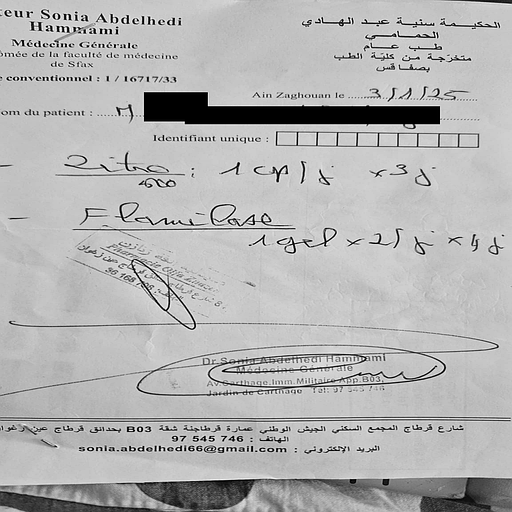 teur Sonia Abdelhedi
Hammami
Médecine Générale
ômée de la faculté de médecine
de Sfax
e conventionnel : 1 / 16717/33
الحكيمة سنية عبد الهادي
الحمامي
طب عام
متخرّجة من كليّة الطب
بصفاقس
Ain Zaghouan le 3/1/25
om du patient : M
Identifiant unique :
- Zitro : 1 cp/j x 3j
- Flamilase
1 gel x 2/j x 4j
Pharmacie
Dr Sonia Abdelhedi Hammami
Médecine Générale
Av.Carthage.Imm.Militaire App.B03,
Jardin de Carthage Tél: 97 545 746
شارع قرطاج المجمع السكني الجيش الوطني عمارة قرطاجنة شقة B03 بحدائق قرطاج عين زغوا
الهاتف : 97 545 746
البريد الإلكتروني : sonia.abdelhedi66@gmail.com